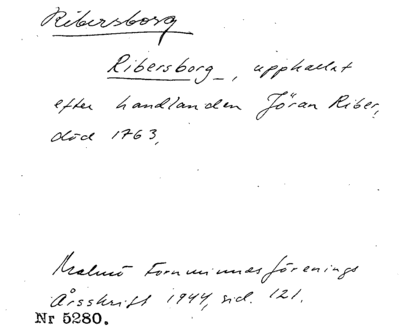 Ribersborg
Ribersborg, uppkallat
efter handlanden Jöran Riber,
död 1763,
Malmö Fornminnesförenings
Årsskrift 1944, sid. 121.
Nr 5280.